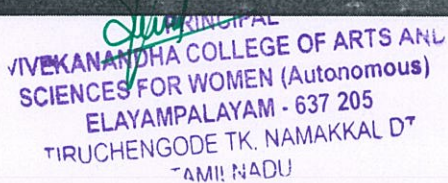 PRINCIPAL
VIVEKANANDHA COLLEGE OF ARTS AND
SCIENCES FOR WOMEN (Autonomous)
ELAYAMPALAYAM - 637 205
TIRUCHENGODE TK. NAMAKKAL DT
TAMILNADU